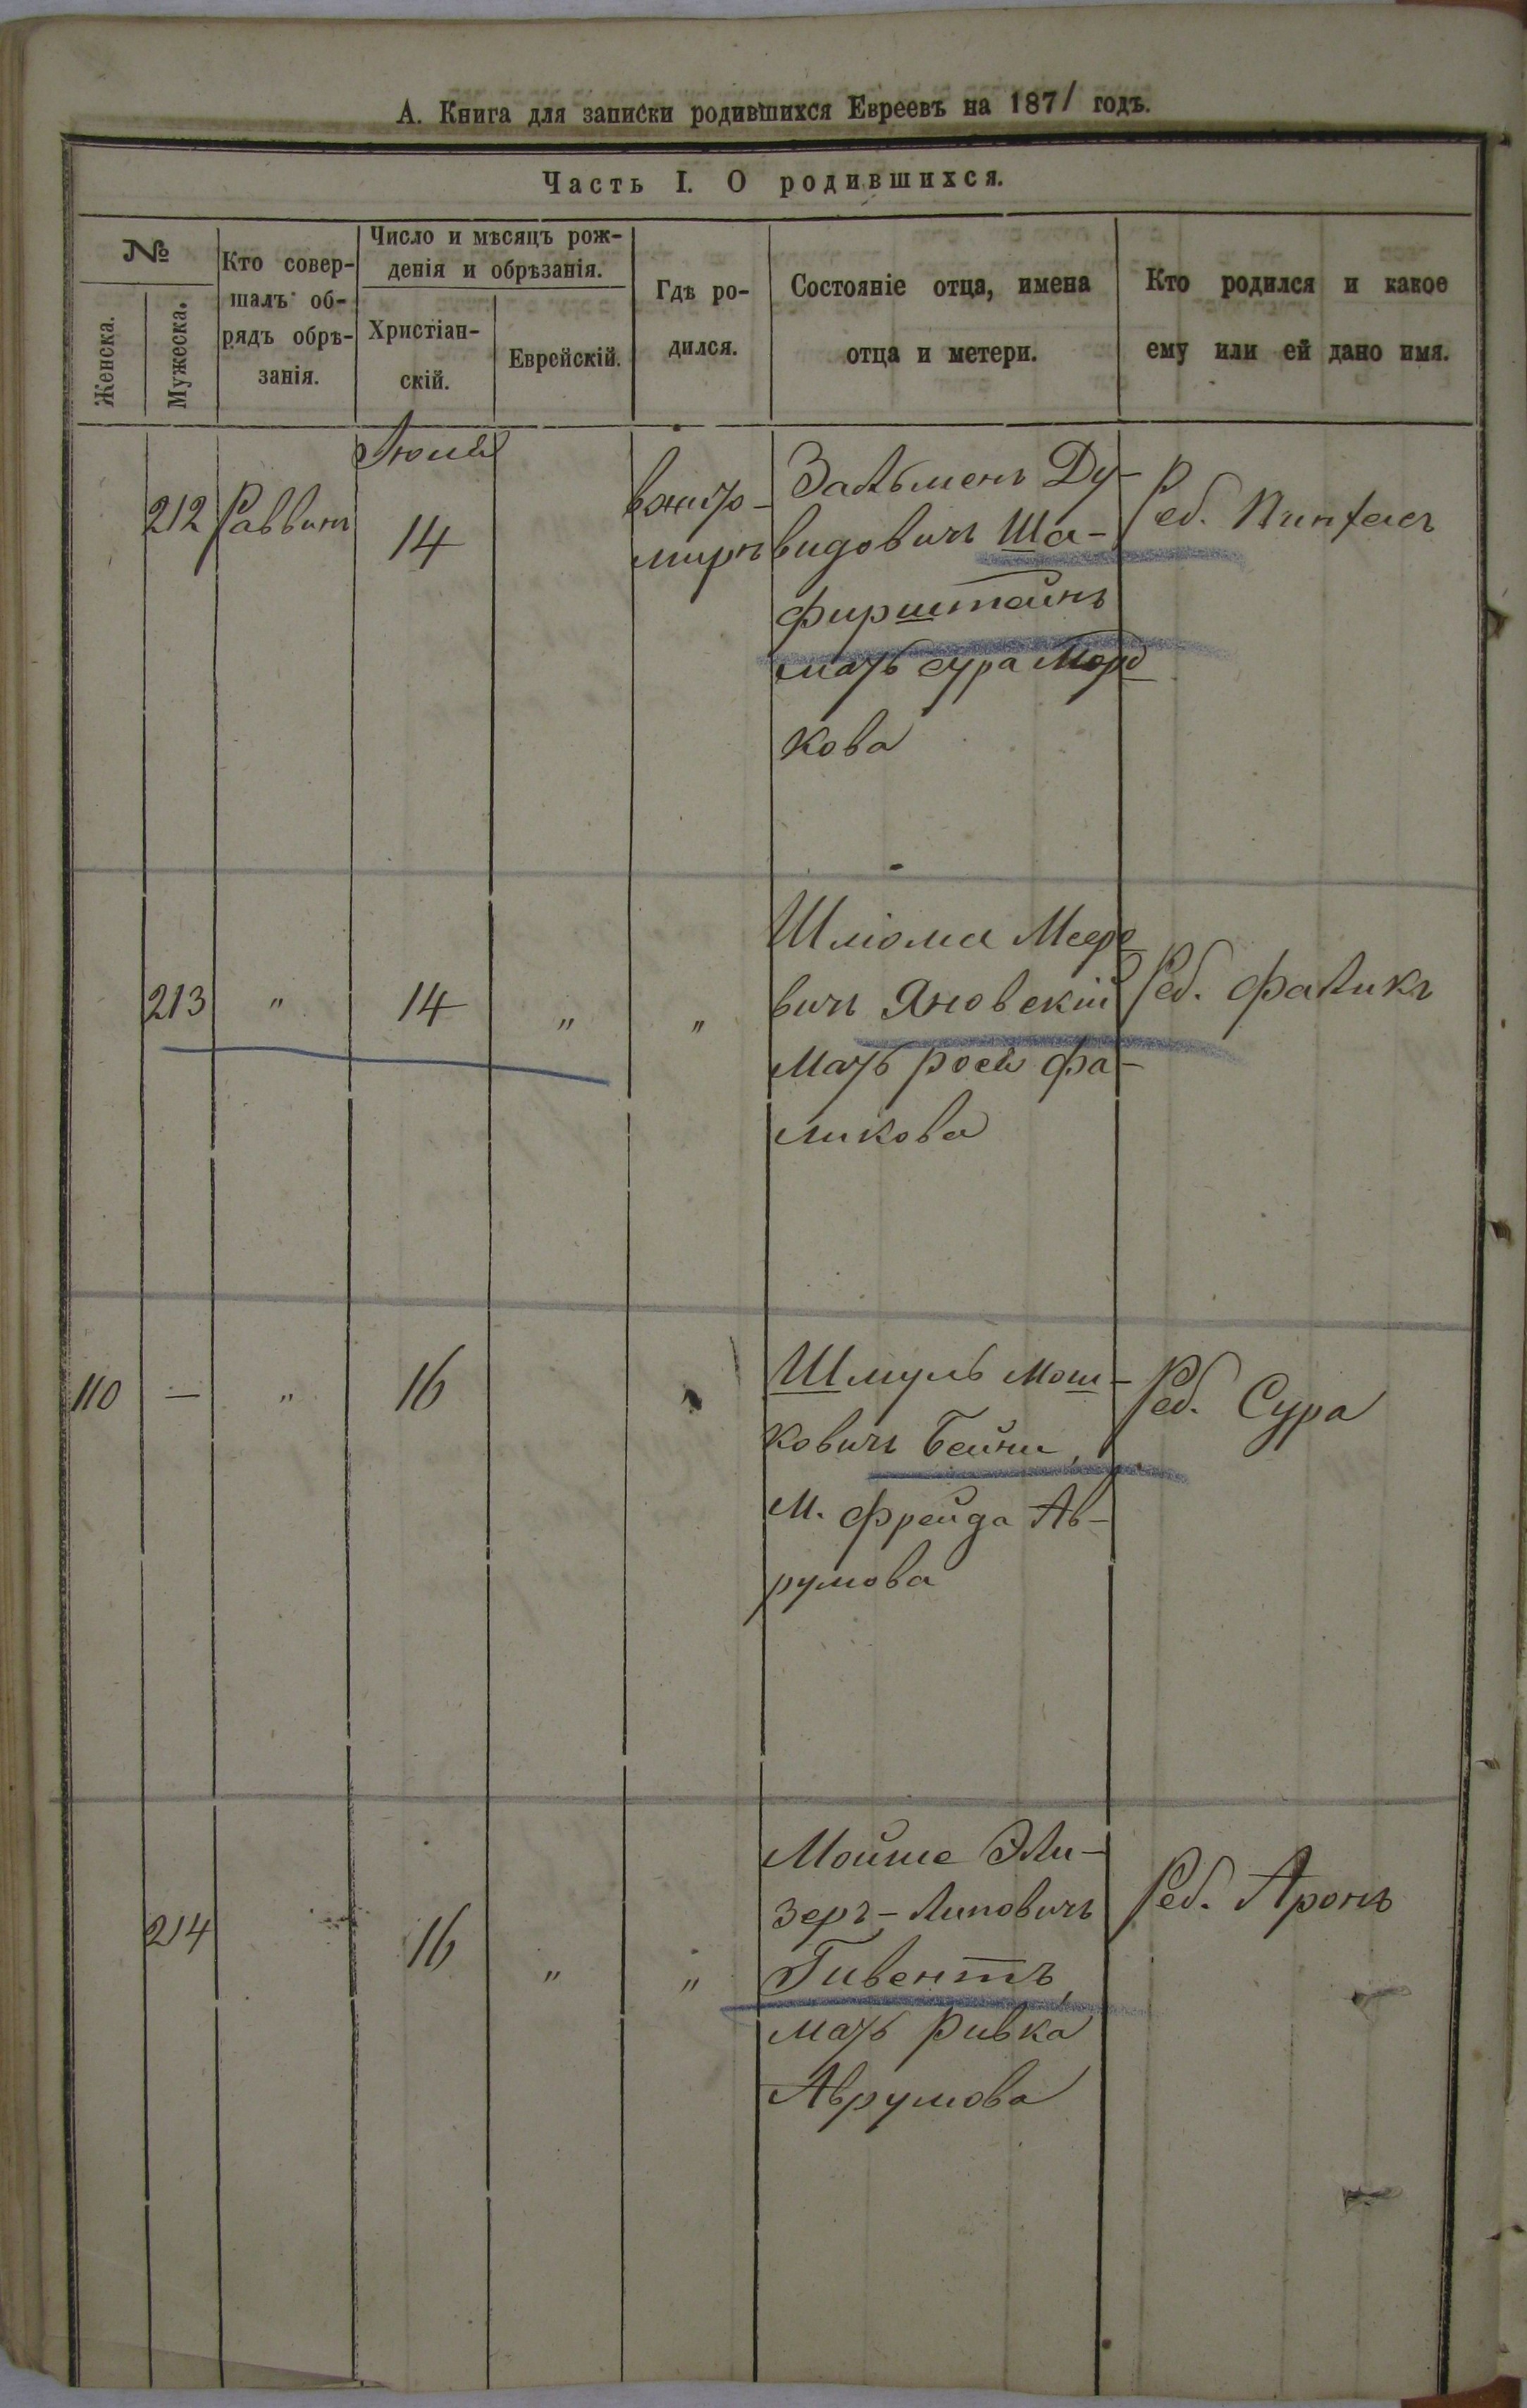 А. Книга для записки родившихся Евреевъ на 1871 годъ.
Часть I. О родившихся.
№
Женска.
Мужеска.
Кто совер-
шалъ об-
рядъ обрѣ-
занія.
Число и мѣсяцъ рож-
денія и обрѣзанія.
Христіан-
скій.
Еврейскій.
Гдѣ ро-
дился.
Состояніе отца, имена
отца и метери.
Кто родился и какое
ему или ей дано имя.
212
Раввинъ
14
вжито-
мирѣ
Зальменъ Ду-
видовичъ Ша-
фирштейнъ
мать сура Морд
кова
Реб. Пинхасъ
213
"
14
"
"
Шліома Меер
вичъ Яновскій
мать росля Фа-
ликова
Реб. Фаликъ
110
—
"
16
"
Шмуль Мош-
ковичъ Бейни,
М. Фрейда Ав-
румова
Реб. Сура
214
16
"
"
Мойше Эли-
зеръ-Липовичъ
Гивентъ,
мать Ривка
Аврумова
Реб. Аронъ